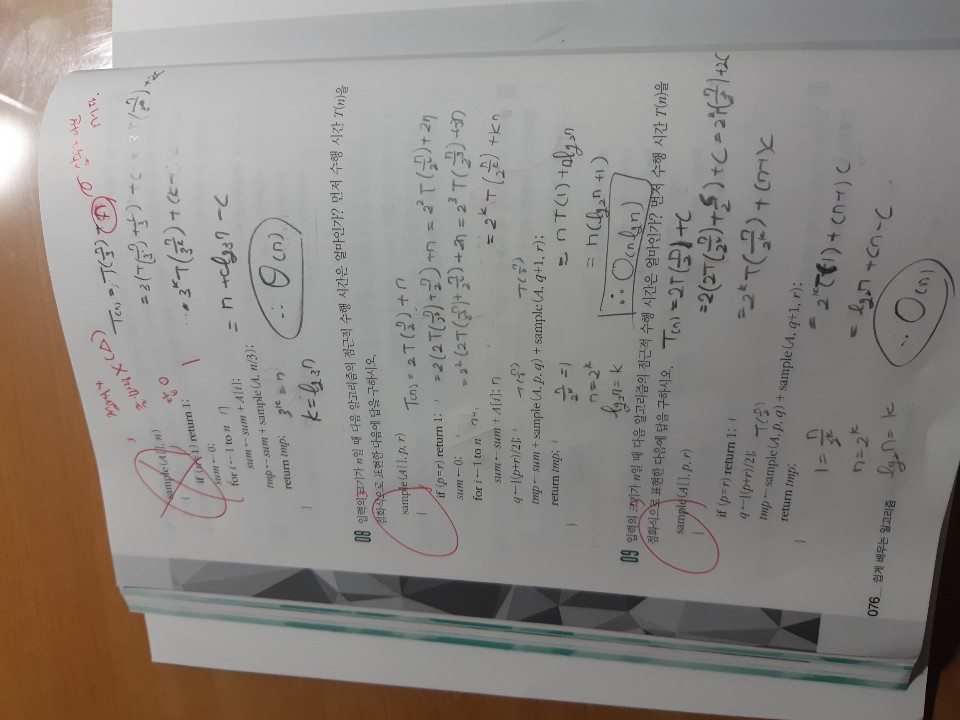 sample(A[], n)
{
if (n=1) return 1;
sum←0;
for i←1 to n n
sum←sum + A[i];
tmp←sum + sample(A, n/3);
return tmp;
}
3^k = n
k = lg₃n
T(n) = T(n/3) + n
= n + clg₃n - c
∴ Θ(n)
08 입력의 크기가 n일 때 다음 알고리즘의 점근적 수행 시간은 얼마인가? 먼저 수행 시간 T(n)을
점화식으로 표현한 다음에 답을 구하시오.
sample(A[], p, r)
{
if (p=r) return 1; 1
sum←0;
for i←1 to n
sum←sum + A[i]; n
q←⌊(p+r)/2⌋;
T(n/2) T(n/2)
tmp←sum + sample(A, p, q) + sample(A, q+1, r);
return tmp;
}
T(n) = 2T(n/2) + n
= 2(2T(n/2²) + n/2) + n = 2²T(n/2²) + 2n
= 2²(2T(n/2³) + n/2²) + 2n = 2³T(n/2³) + 3n
= 2^k T(n/2^k) + kn
= nT(1) + nlg₂n
= n(lg₂n + 1)
∴ O(nlgn)
n/2^k = 1
n = 2^k
lg₂n = k
09 입력의 크기가 n일 때 다음 알고리즘의 점근적 수행 시간은 얼마인가? 먼저 수행 시간 T(n)을
점화식으로 표현한 다음에 답을 구하시오.
sample(A[], p, r)
{
if (p=r) return 1; 1
q←⌊(p+r)/2⌋;
T(n/2)
tmp←sample(A, p, q) + sample(A, q+1, r);
return tmp;
}
T(n) = 2T(n/2) + c
= 2^k T(n/2^k) + (n-1)c
= 2^k T(1) + (n-1)c
= lg₂n + cn - c
∴ O(n)
n = 2^k
lg₂n = k
076 쉽게 배우는 알고리즘